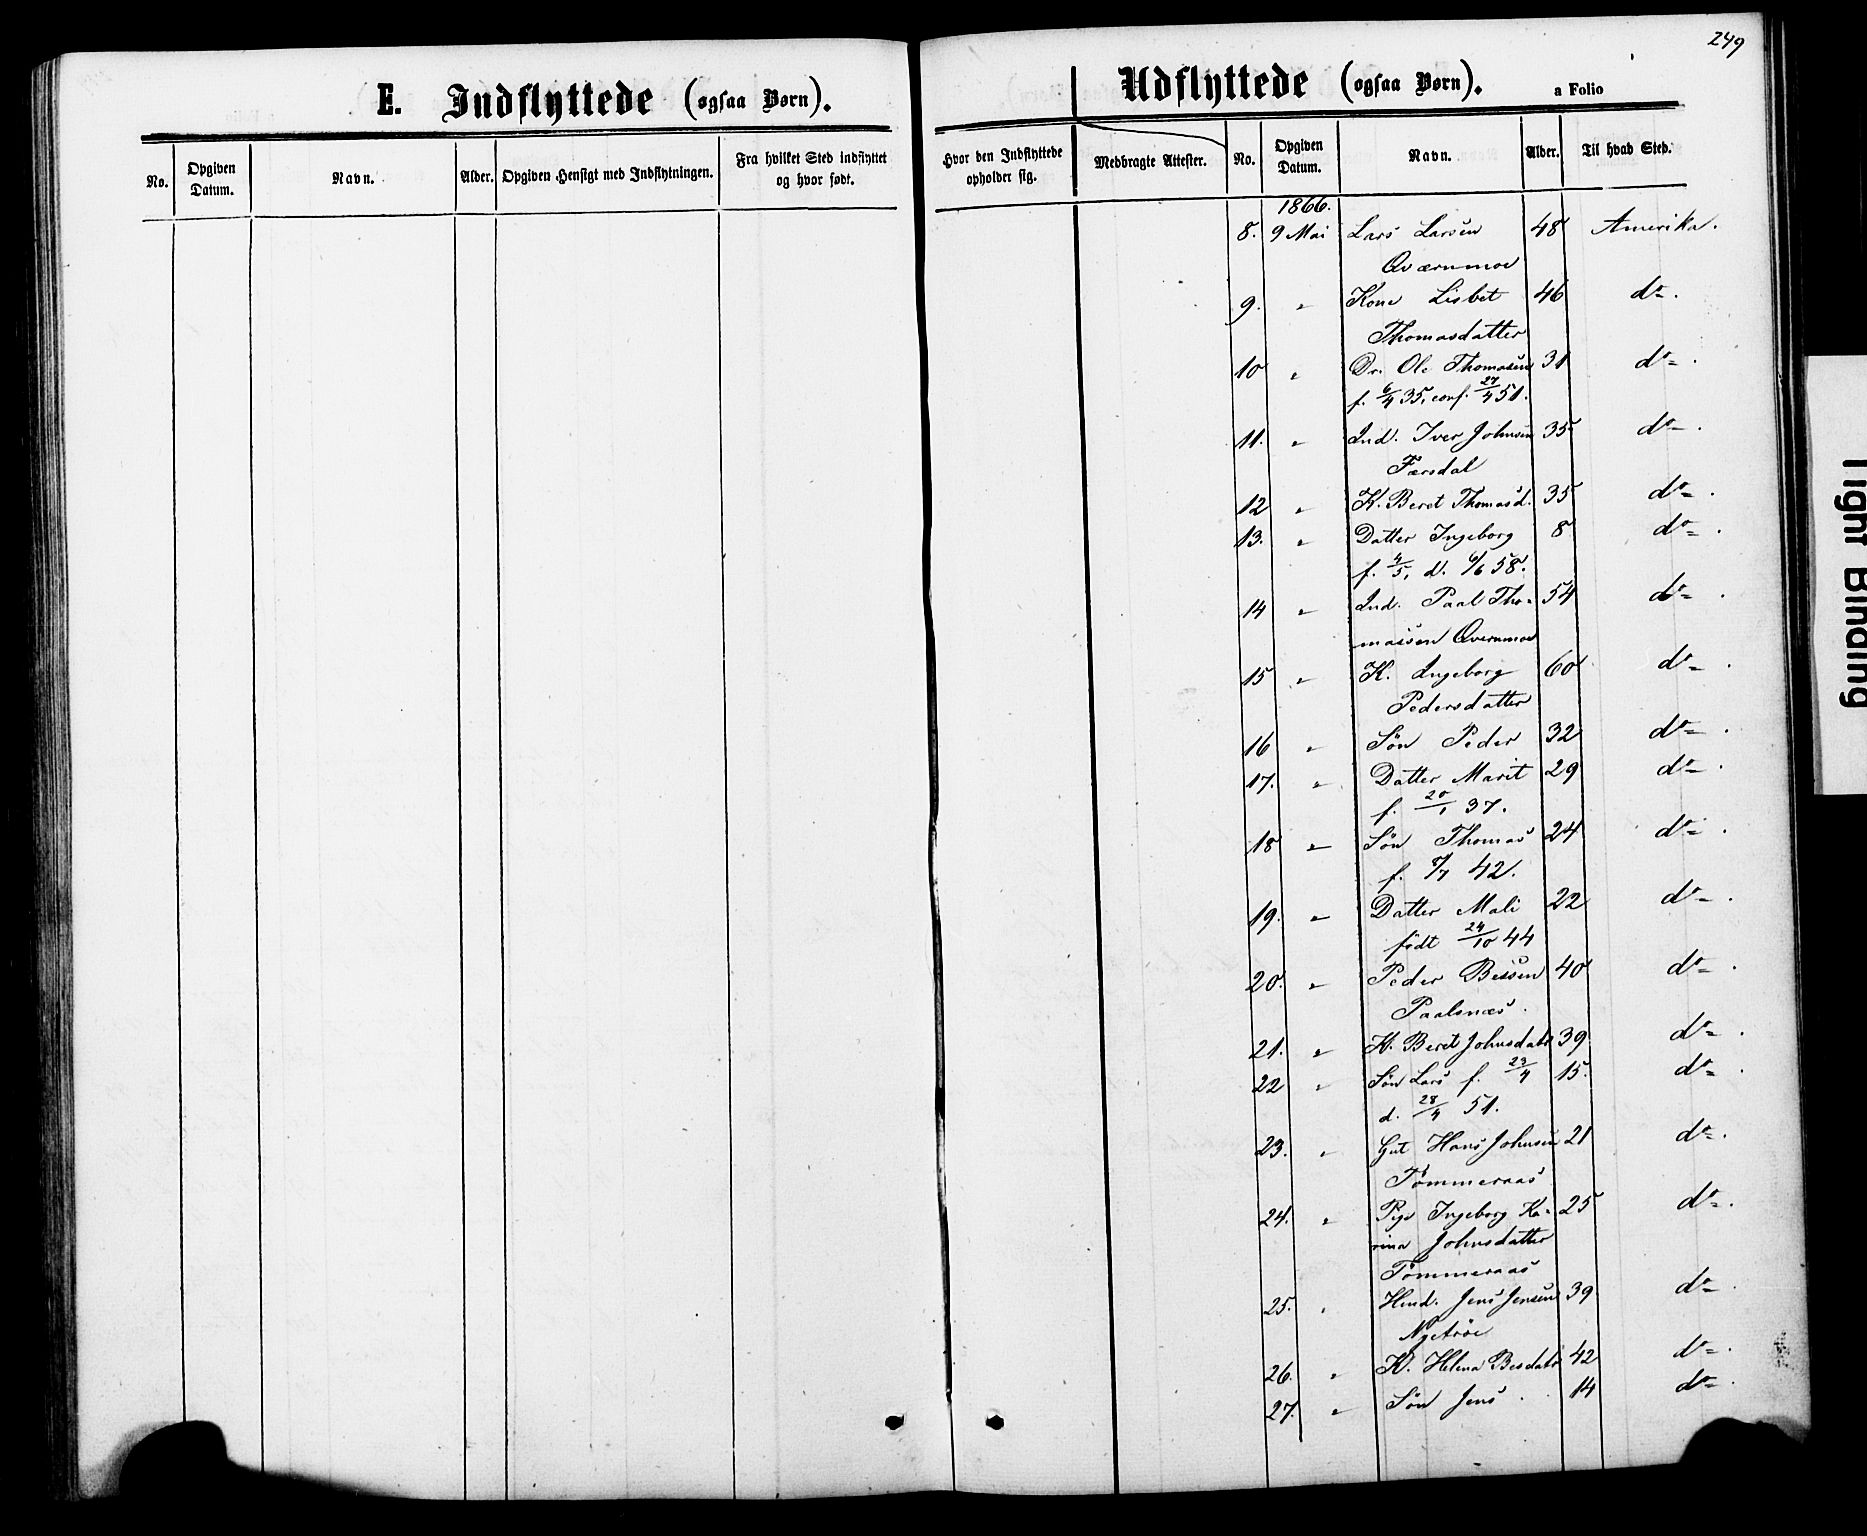 249
E. Indflyttede (ogsaa Børn).
Udflyttede (ogsaa Børn).
a Folio
No. Opgiven Datum. Navn. Alder. Opgiven Hensigt med Indflytningen. Fra hvilket Sted indflyttet og hvor født.
Hvor den Indflyttede opholder sig. Medbragte Attester. No. Opgiven Datum. Navn. Alder. Til hvad Sted.
1866.
8. 9 Mai Lars Larsen 48 Amerika.
Qværnmoe
9. " Kone Lisbet 46 do.
Thomasdatter
10 " Dr. Ole Thomasen 31 do.
f. 6/4 35, conf. 27/4 51.
11. " Ind. Iver Johnsen 35 do.
Færsdal
12 " K. Beret Thomasd. 35 do.
13. " Datter Ingeborg 8 do.
f. 4/5, d. 6/6 58.
14 " Ind. Paal Tho- 54 do.
massen Qvernmoe
15 " K. Ingeborg 60 do.
Pedersdatter
16 " Søn Peder 32 do.
17. " Datter Marit 29 do.
f. 20/1 37.
18 " Søn Thomas 24 do.
f. 42.
19. " Datter Mali 22 do.
født 24/10 44
20. " Peder Bessen 40 do.
Paalsnæs.
21. " K. Beret Johnsdatr 39 do.
22 " Søn Lars f. 23/4 15. do.
d. 28/4 51.
23. " Gut Hans Johnsen 21 do.
Tømmeraas
24. " Pige Ingeborg Ka- 25 do.
rina Johnsdatter
Tømmeraas
25. " Hmd. Jens Jensen 39 do.
Nyetrøe
26. " K. Helena Besdatr 42 do.
27. " Søn Jens. 14 do.
Tight Binding